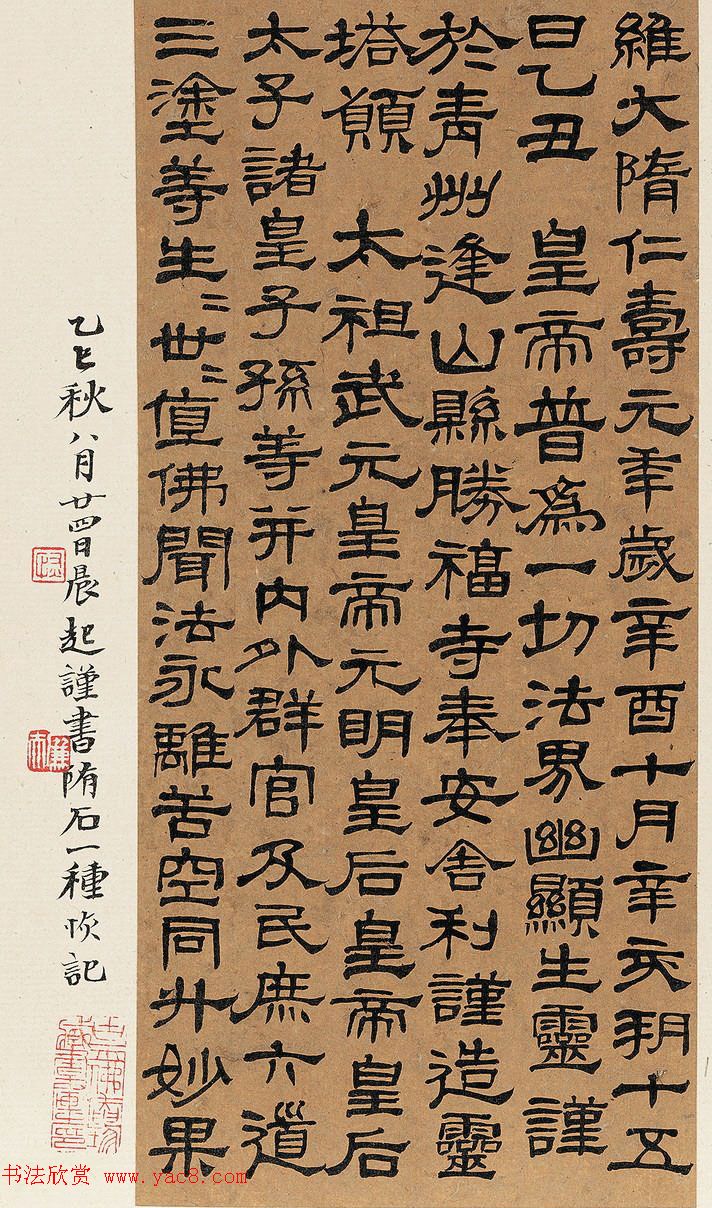 維大隋仁壽元年歲辛酉十月辛亥朔十五
日乙丑 皇帝普為一切法界幽顯生靈謹
於青州逢山縣勝福寺奉安舍利謹造靈
塔願 太祖武元皇帝元明皇后皇帝皇后
太子諸皇子孫等并內外群官及民庶六道
三塗等生〻世〻值佛聞法永離苦空同升妙果
乙巳秋八月廿四日晨起謹書隋石一種 記
书法欣赏 www.yac8.com